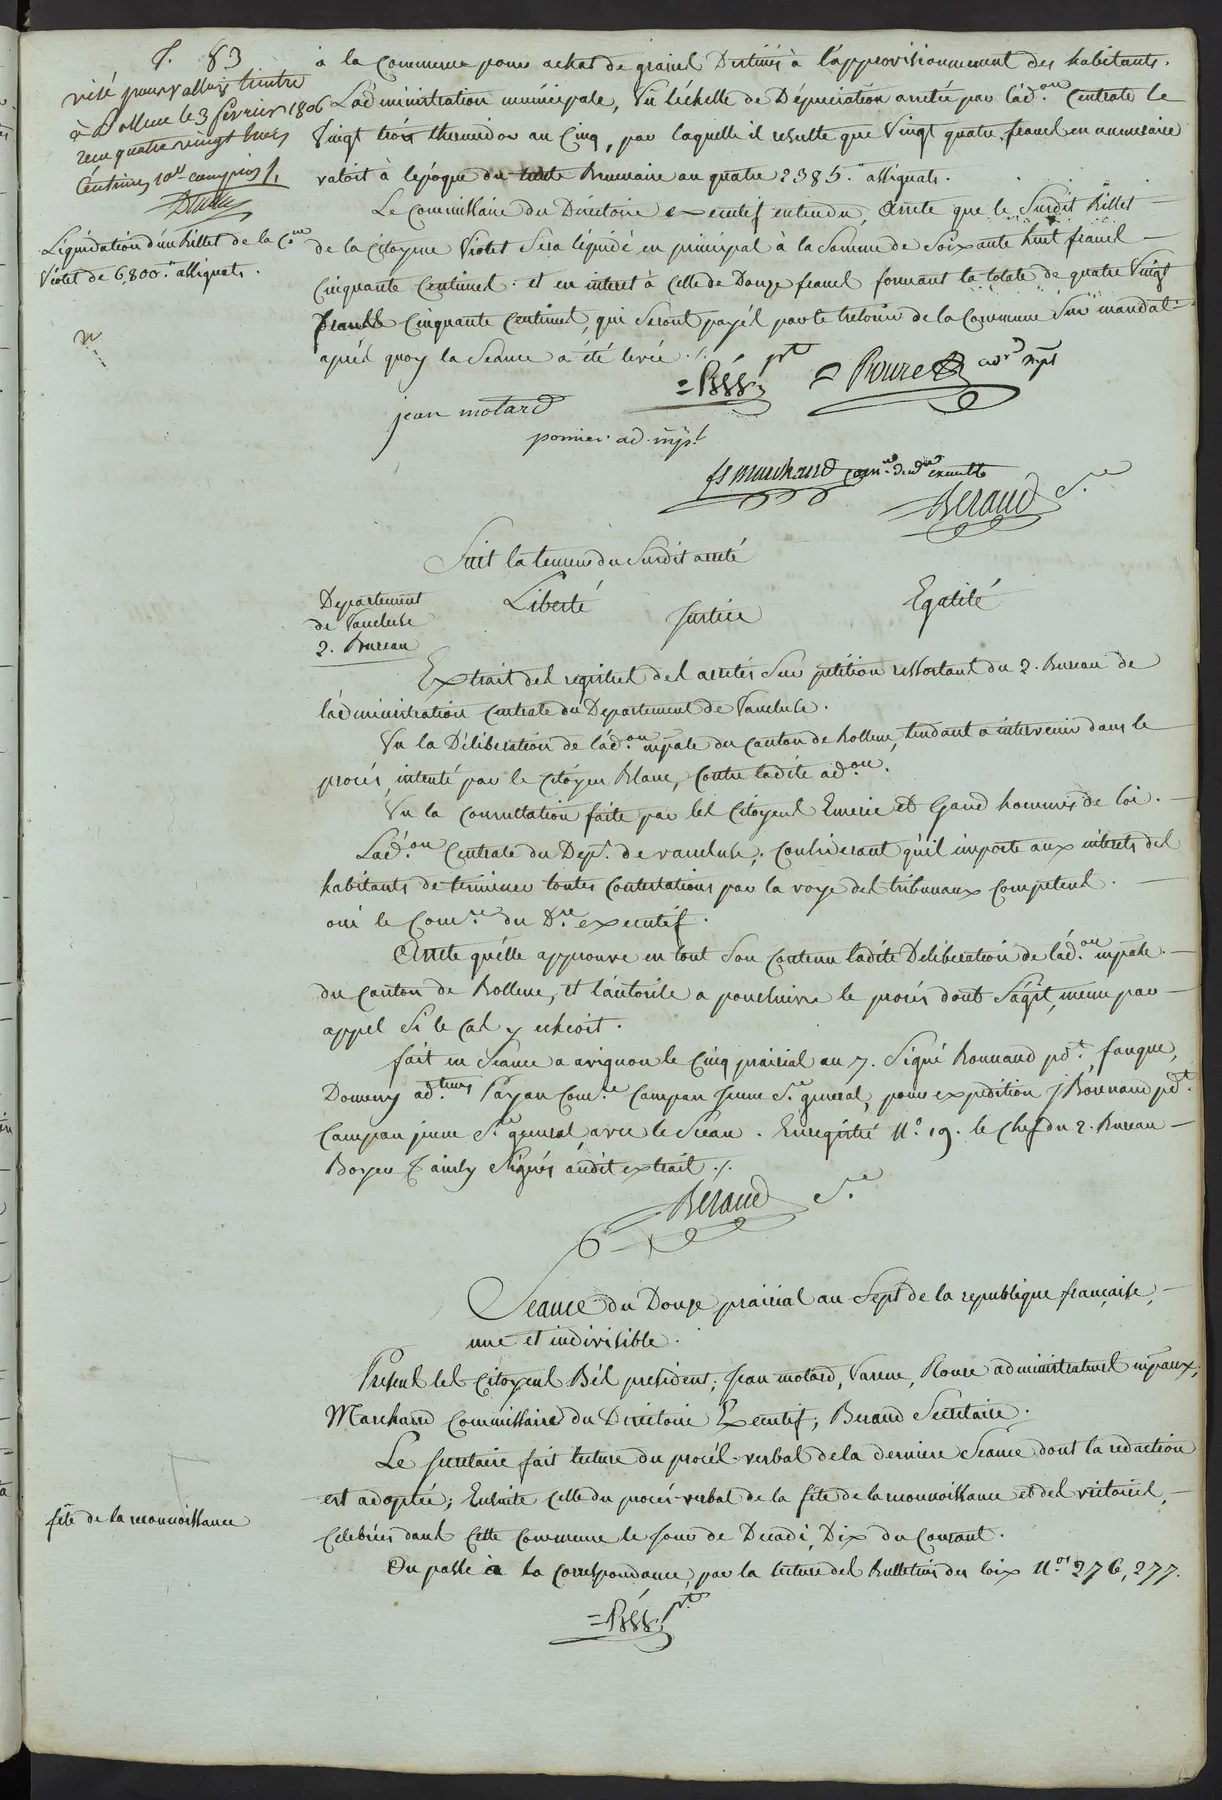 f. 83
visé pour valloir timbre
à Bollene le 3 fevrier 1806
recu quatre vingt trois
Centimes 10e compris /.
Liquidation d'un billet de la C.me
Violet de 6,800.# assignats.
à la Commune pour achat de grains Destinés à l'approvisionnement des habitants.
L'administration municipale, Vu l'échelle de Dépreciation arretée par l'ad.on Centrale le
Vingt trois thermidor an Cinq, par laquelle il resulte que Vingt quatre francs en numeraire
valoit à l'époque du trente Brumaire an quatre 2385.# assignats.
Le Commissaire du Directoire executif entendu, Arrete que le Susdit Billet
de la Citoyene Violet Sera liquidé en principal à la Somme de Soixante huit francs
Cinquante Centimes. et en interet à Celle de Douze francs formant la totale de quatre Vingt
francs Cinquante Centimes, qui Seront payés par le trésorier de la Commune Sur mandat
après quoy la Seance a été levée ./.
jean motard
pomier ad. mpl
fs marchand
Beraud S.re
Suit la teneur du Susdit arreté
Departement
de Vaucluse
2. Bureau
Liberté Justice Egalité
Extrait des registres des arretés Sur pétition ressortant du 2. Bureau de
l'administration Centrale du Departement de Vaucluse.
Vu la Déliberation de l'ad.on mpale du Canton de Bollene, tendant a intervenir dans le
procés, intenté par le Citoyen Blanc, Contre ladite ad.on.
Vu la Consultation faite par les Citoyens Emeric et Gaud hommes de loi.
L'ad.on Centrale du Dep.t de vaucluse, Considerant qu'il importe aux interets des
habitants de terminer toutes Contestations par la voye des tribunaux Competens.
oui le Com.re du D.re executif.
Arrete qu'elle approuve en tout Son Contenu ladite Deliberation de l'ad.on mpale.
du Canton de Bollene, et l'autorise a poursuivre le procés dont S'agit, meme par
appel Si le Cas y echeoit.
fait en Seance a avignon le Cinq prairial an 7. Signé Bonnaud pd.t, fauque,
Domeny ad.teurs Payan Com.re Campan jeune S.re general, pour expedition j Bonnaud pd.t
Campan jeune S.re general, avec le Sceau. Enregistré N.o 19. le Chef du 2. Bureau
Boyer Signés audit extrait ./.
Beraud S.re
Seance du Douze prairial an Sept de la republique française,
une et indivisible.
Présens les Citoyens Bès president, Jean motard, Varene, Roure administrateurs mpaux,
Marchand Commissaire du Directoire Executif, Beraud Secretaire.
Le Secretaire fait lecture du procès-verbal de la derniere Seance dont la redaction
est adoptée; Ensuite Celle du procès-verbal de la fête de la reconnoissance et des victoires,
Célebrées dans Cette Commune le jour de Decadi, Dix du Courant.
fête de la reconnoissance
On passe à la Correspondance, par la lecture des Bulletins des loix N.os 276, 277.